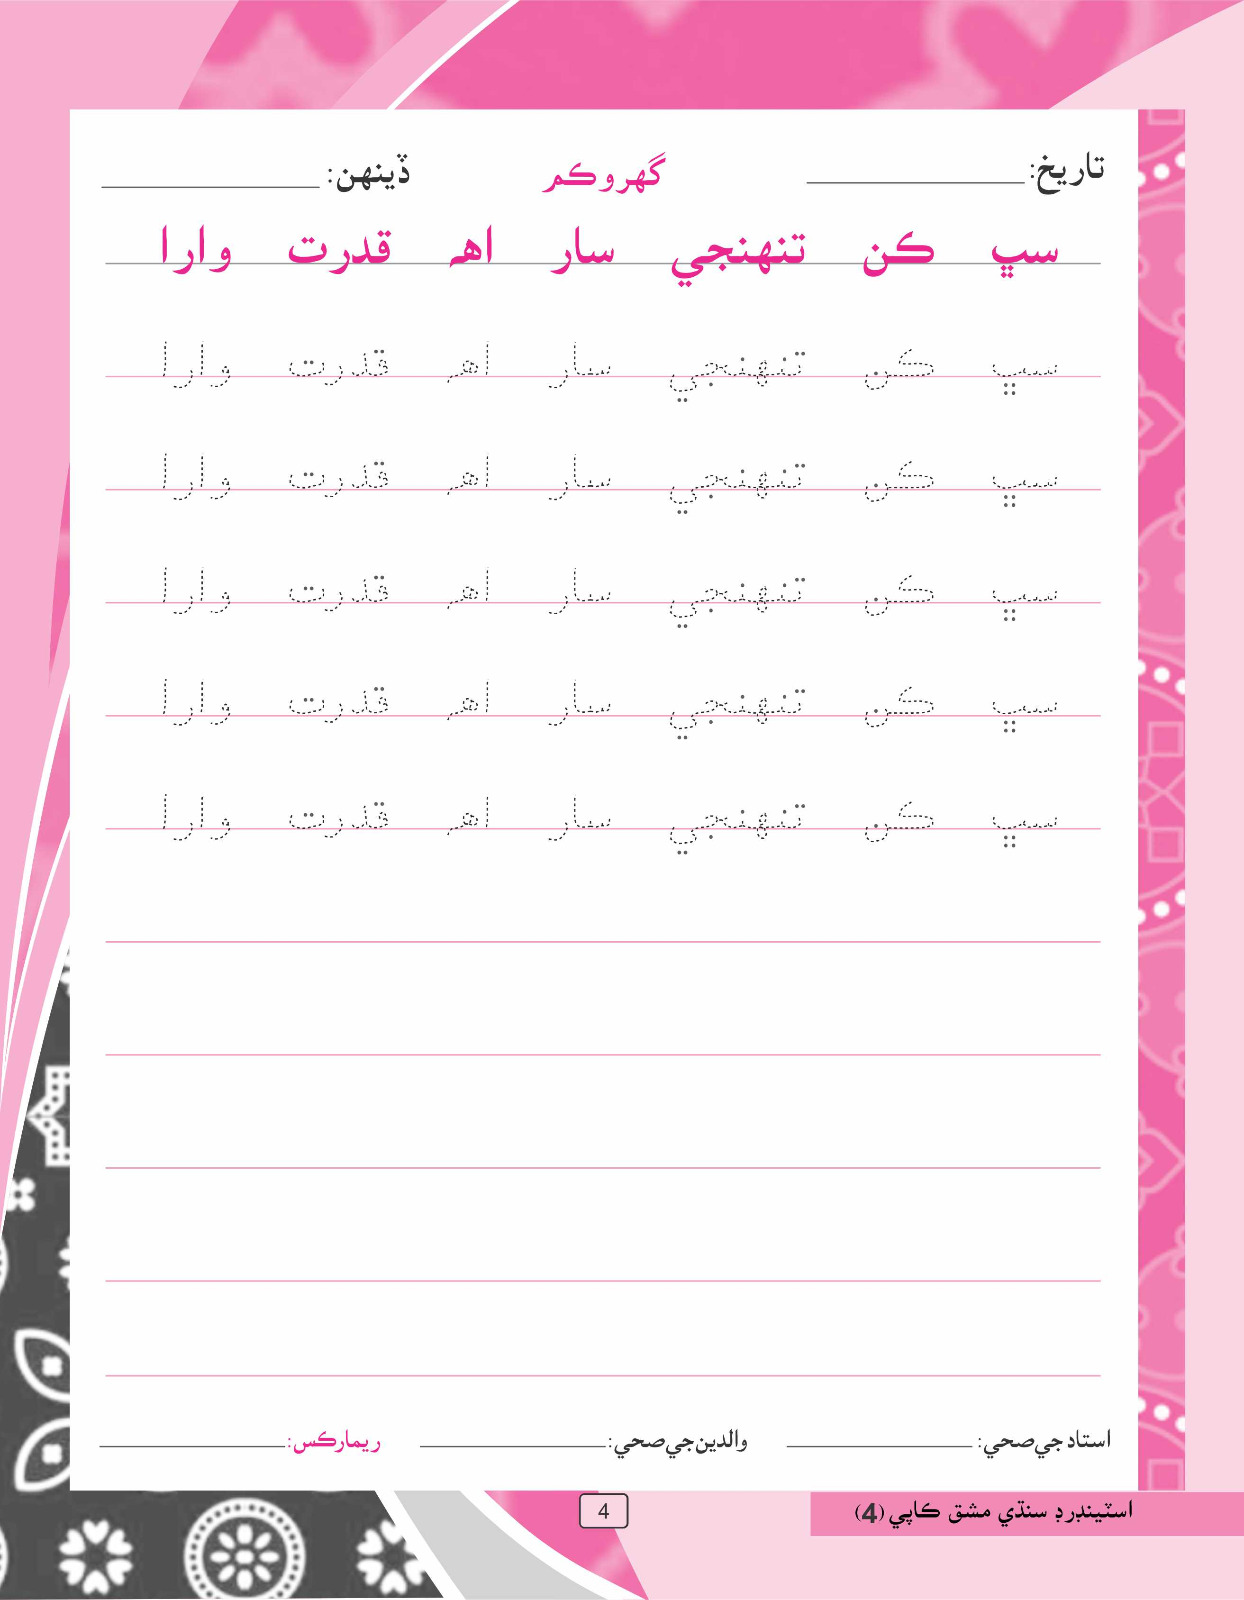 تاريخ: گهروڪم ڏينهن:
سڀ ڪن تنهنجي سار اهہ قدرت وارا
سڀ ڪن تنهنجي سار اهہ قدرت وارا
سڀ ڪن تنهنجي سار اهہ قدرت وارا
سڀ ڪن تنهنجي سار اهہ قدرت وارا
سڀ ڪن تنهنجي سار اهہ قدرت وارا
سڀ ڪن تنهنجي سار اهہ قدرت وارا
استاد جي صحي: والدين جي صحي: ريمارڪس:
اسٽينڊرڊ سنڌي مشق ڪاپي (4)
4